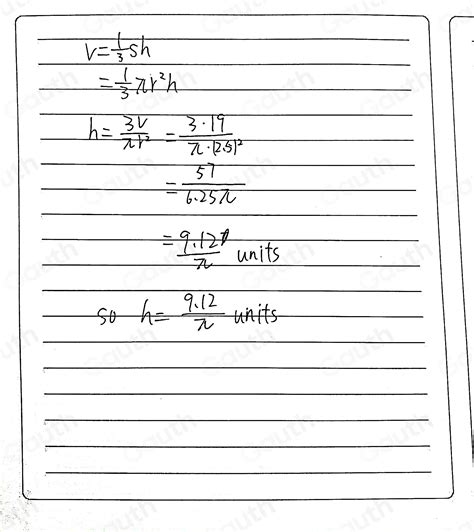 V = 1/3 Sh
= 1/3 πr²h
h = 3V/πr² = 3·19/π·(2.5)²
= 57/6.25π
= 9.12/π units
so h = 9.12/π units